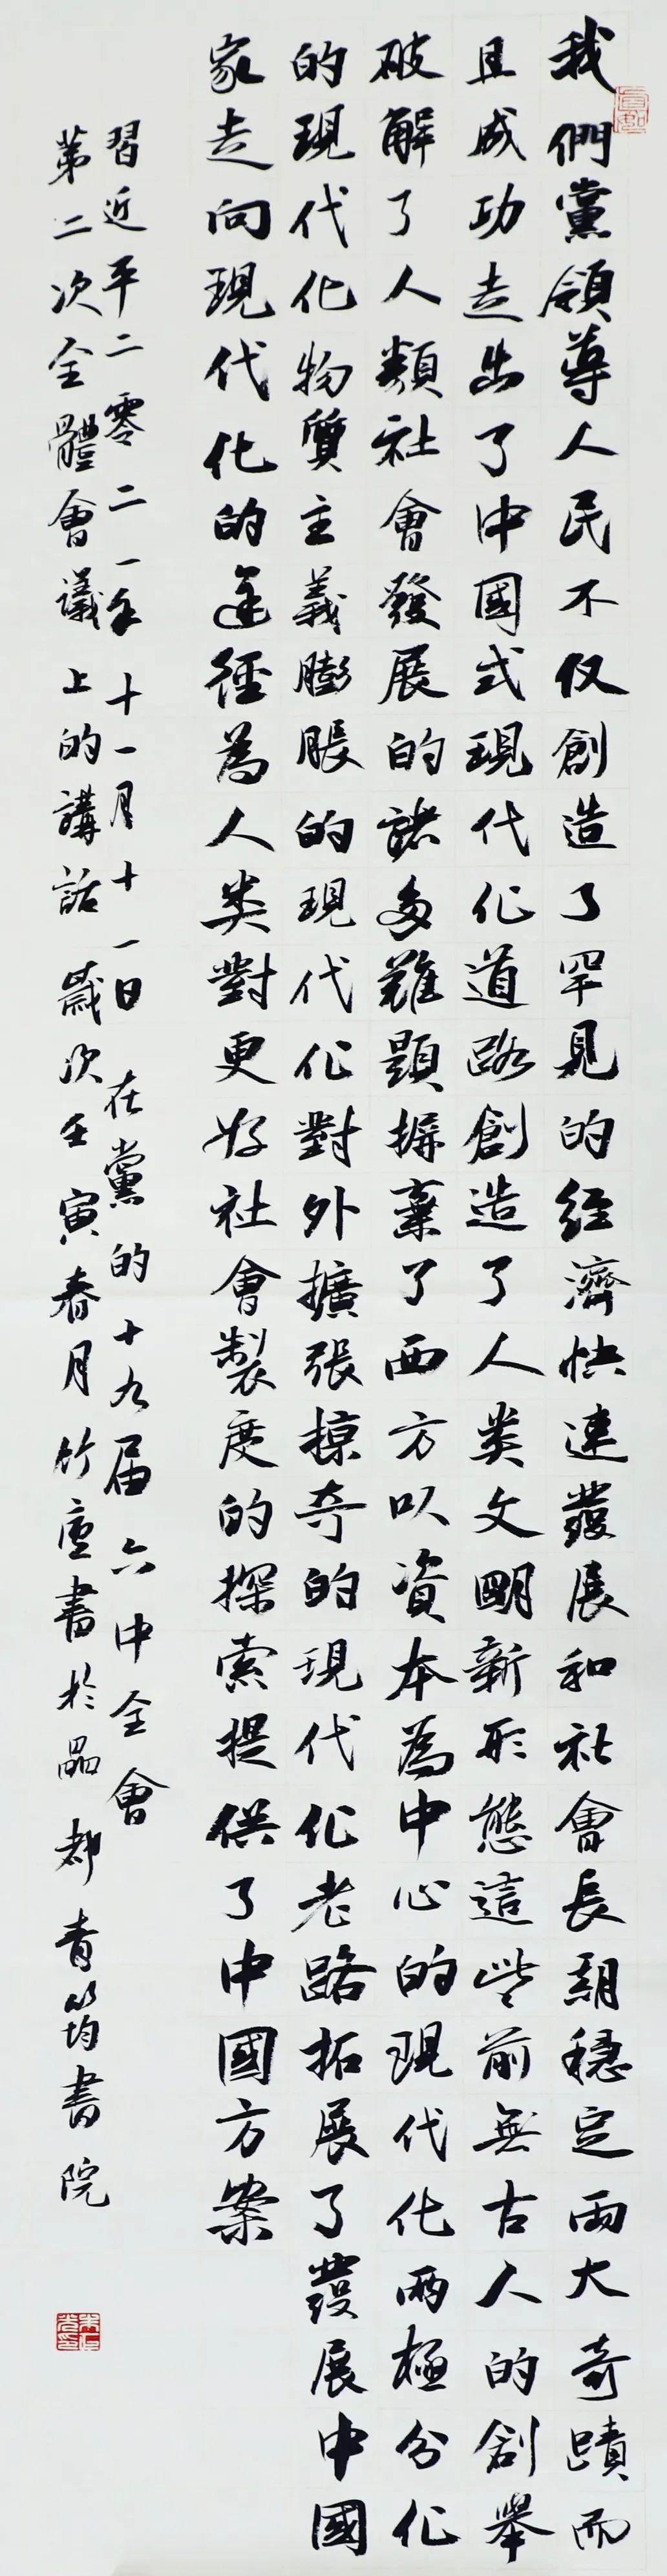 我們黨領導人民不仅創造了罕見的經濟快速發展和社會長期穩定兩大奇蹟而
且成功走出了中國式現代化道路創造了人类文明新形態這些前無古人的創舉
破解了人類社會發展的諸多難題摒棄了西方以資本為中心的現代化兩極分化
的現代化物質主義膨脹的現代化對外擴張掠奇的現代化老路拓展了發展中國
家走向現代化的途徑為人类對更好社會製度的探索提供了中國方案
習近平二零二一年十一月十一日在黨的十九届六中全會
第二次全體會議上的講話歲次壬寅春月竹廬書於晶都青筠書院